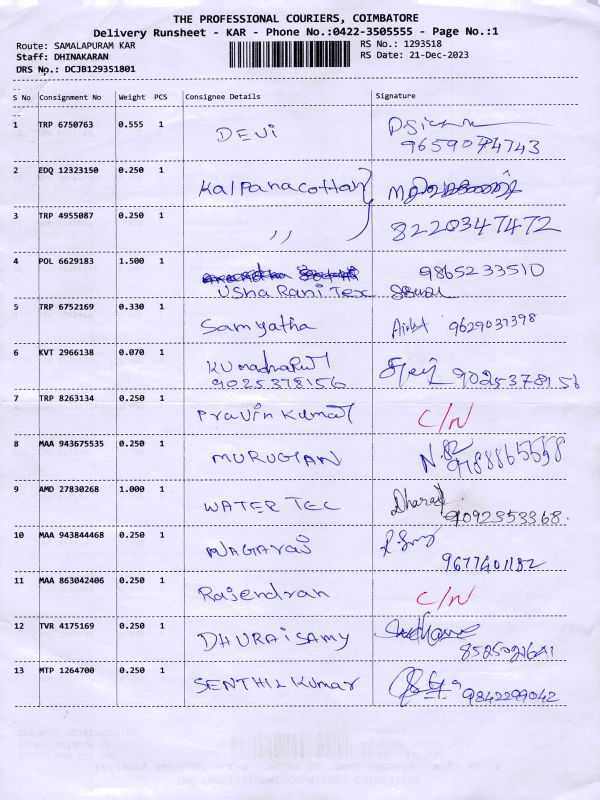 THE PROFESSIONAL COURIERS, COIMBATORE
Delivery Runsheet - KAR - Phone No.:0422-3505555 - Page No.:1
Route: SAMALAPURAM KAR RS No.: 1293518
Staff: DHINAKARAN RS Date: 21-Dec-2023
DRS No.: DCJB129351801
S No Consignment No Weight PCS Consignee Details Signature
1 TRP 6750763 0.555 1 DEVI
9659074743
2 EDQ 12323150 0.250 1 Kalpanacottan
3 TRP 4955087 0.250 1 ,, 8220347472
4 POL 6629183 1.500 1 9865233510
Usha Rani Tex
5 TRP 6752169 0.330 1 Samyatha 9629037398
6 KVT 2966138 0.070 1
9025378156 9025378156
7 TRP 8263134 0.250 1 Pravin Kumar C/N
8 MAA 943675535 0.250 1 MURUGAN
9 AMD 27830268 1.000 1 WATER TEC
9092353368
10 MAA 943844468 0.250 1 NAGARAJ
9677401182
11 MAA 863042406 0.250 1 Rajendran C/N
12 TVR 4175169 0.250 1 DHURAISAMY
13 MTP 1264700 0.250 1 SENTHIL Kumar 9842299042